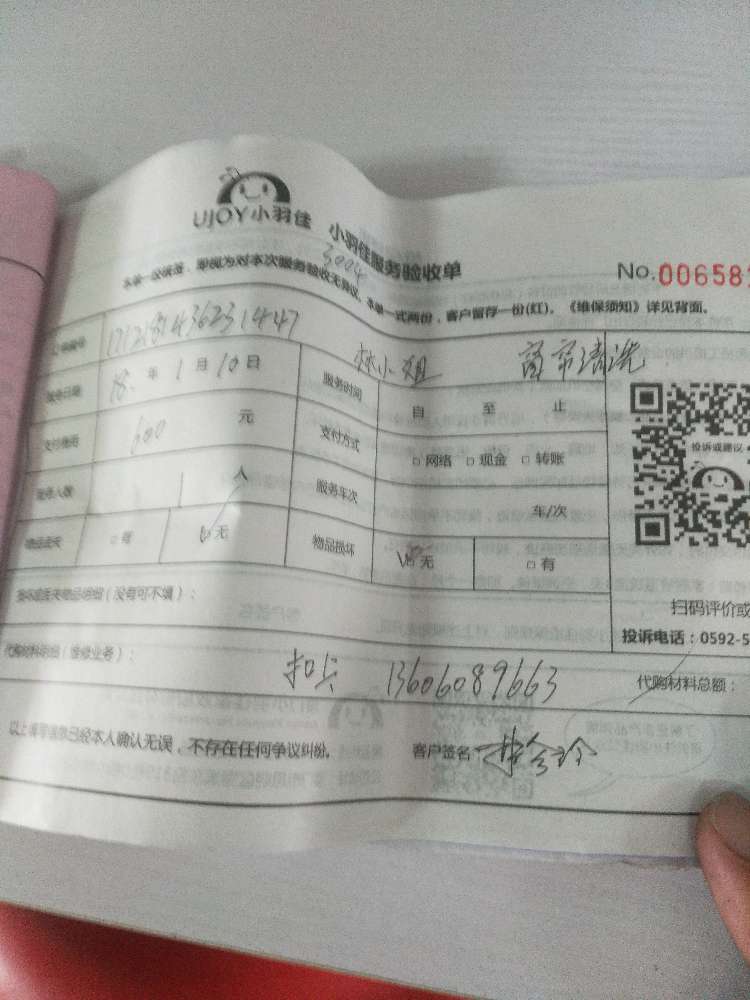 UJOY小羽佳 小羽佳服务验收单
No.00658
3004
本单一经填签，即视为对本次服务验收无异议，本单一式两份，客户留存一份(红)。《维保须知》详见背面。
订单编号
林小姐 窗帘清洗
服务日期 18 年 1 月 10 日 服务时间 自 至 止
支付费用 600 元 支付方式 □ 网络 □ 现金 □ 转账
投诉或建议
服务人数 1 人 服务车次 车/次
物品丢失 □ 有 □ 无 物品损坏 □ 无 □ 有
损坏或丢失物品明细（没有可不填）：
扫码评价或
投诉电话：0592-5
代购材料明细（维修业务）： 13606089663 代购材料总额：
以上填写信息已经本人确认无误，不存在任何争议纠纷。 客户签名